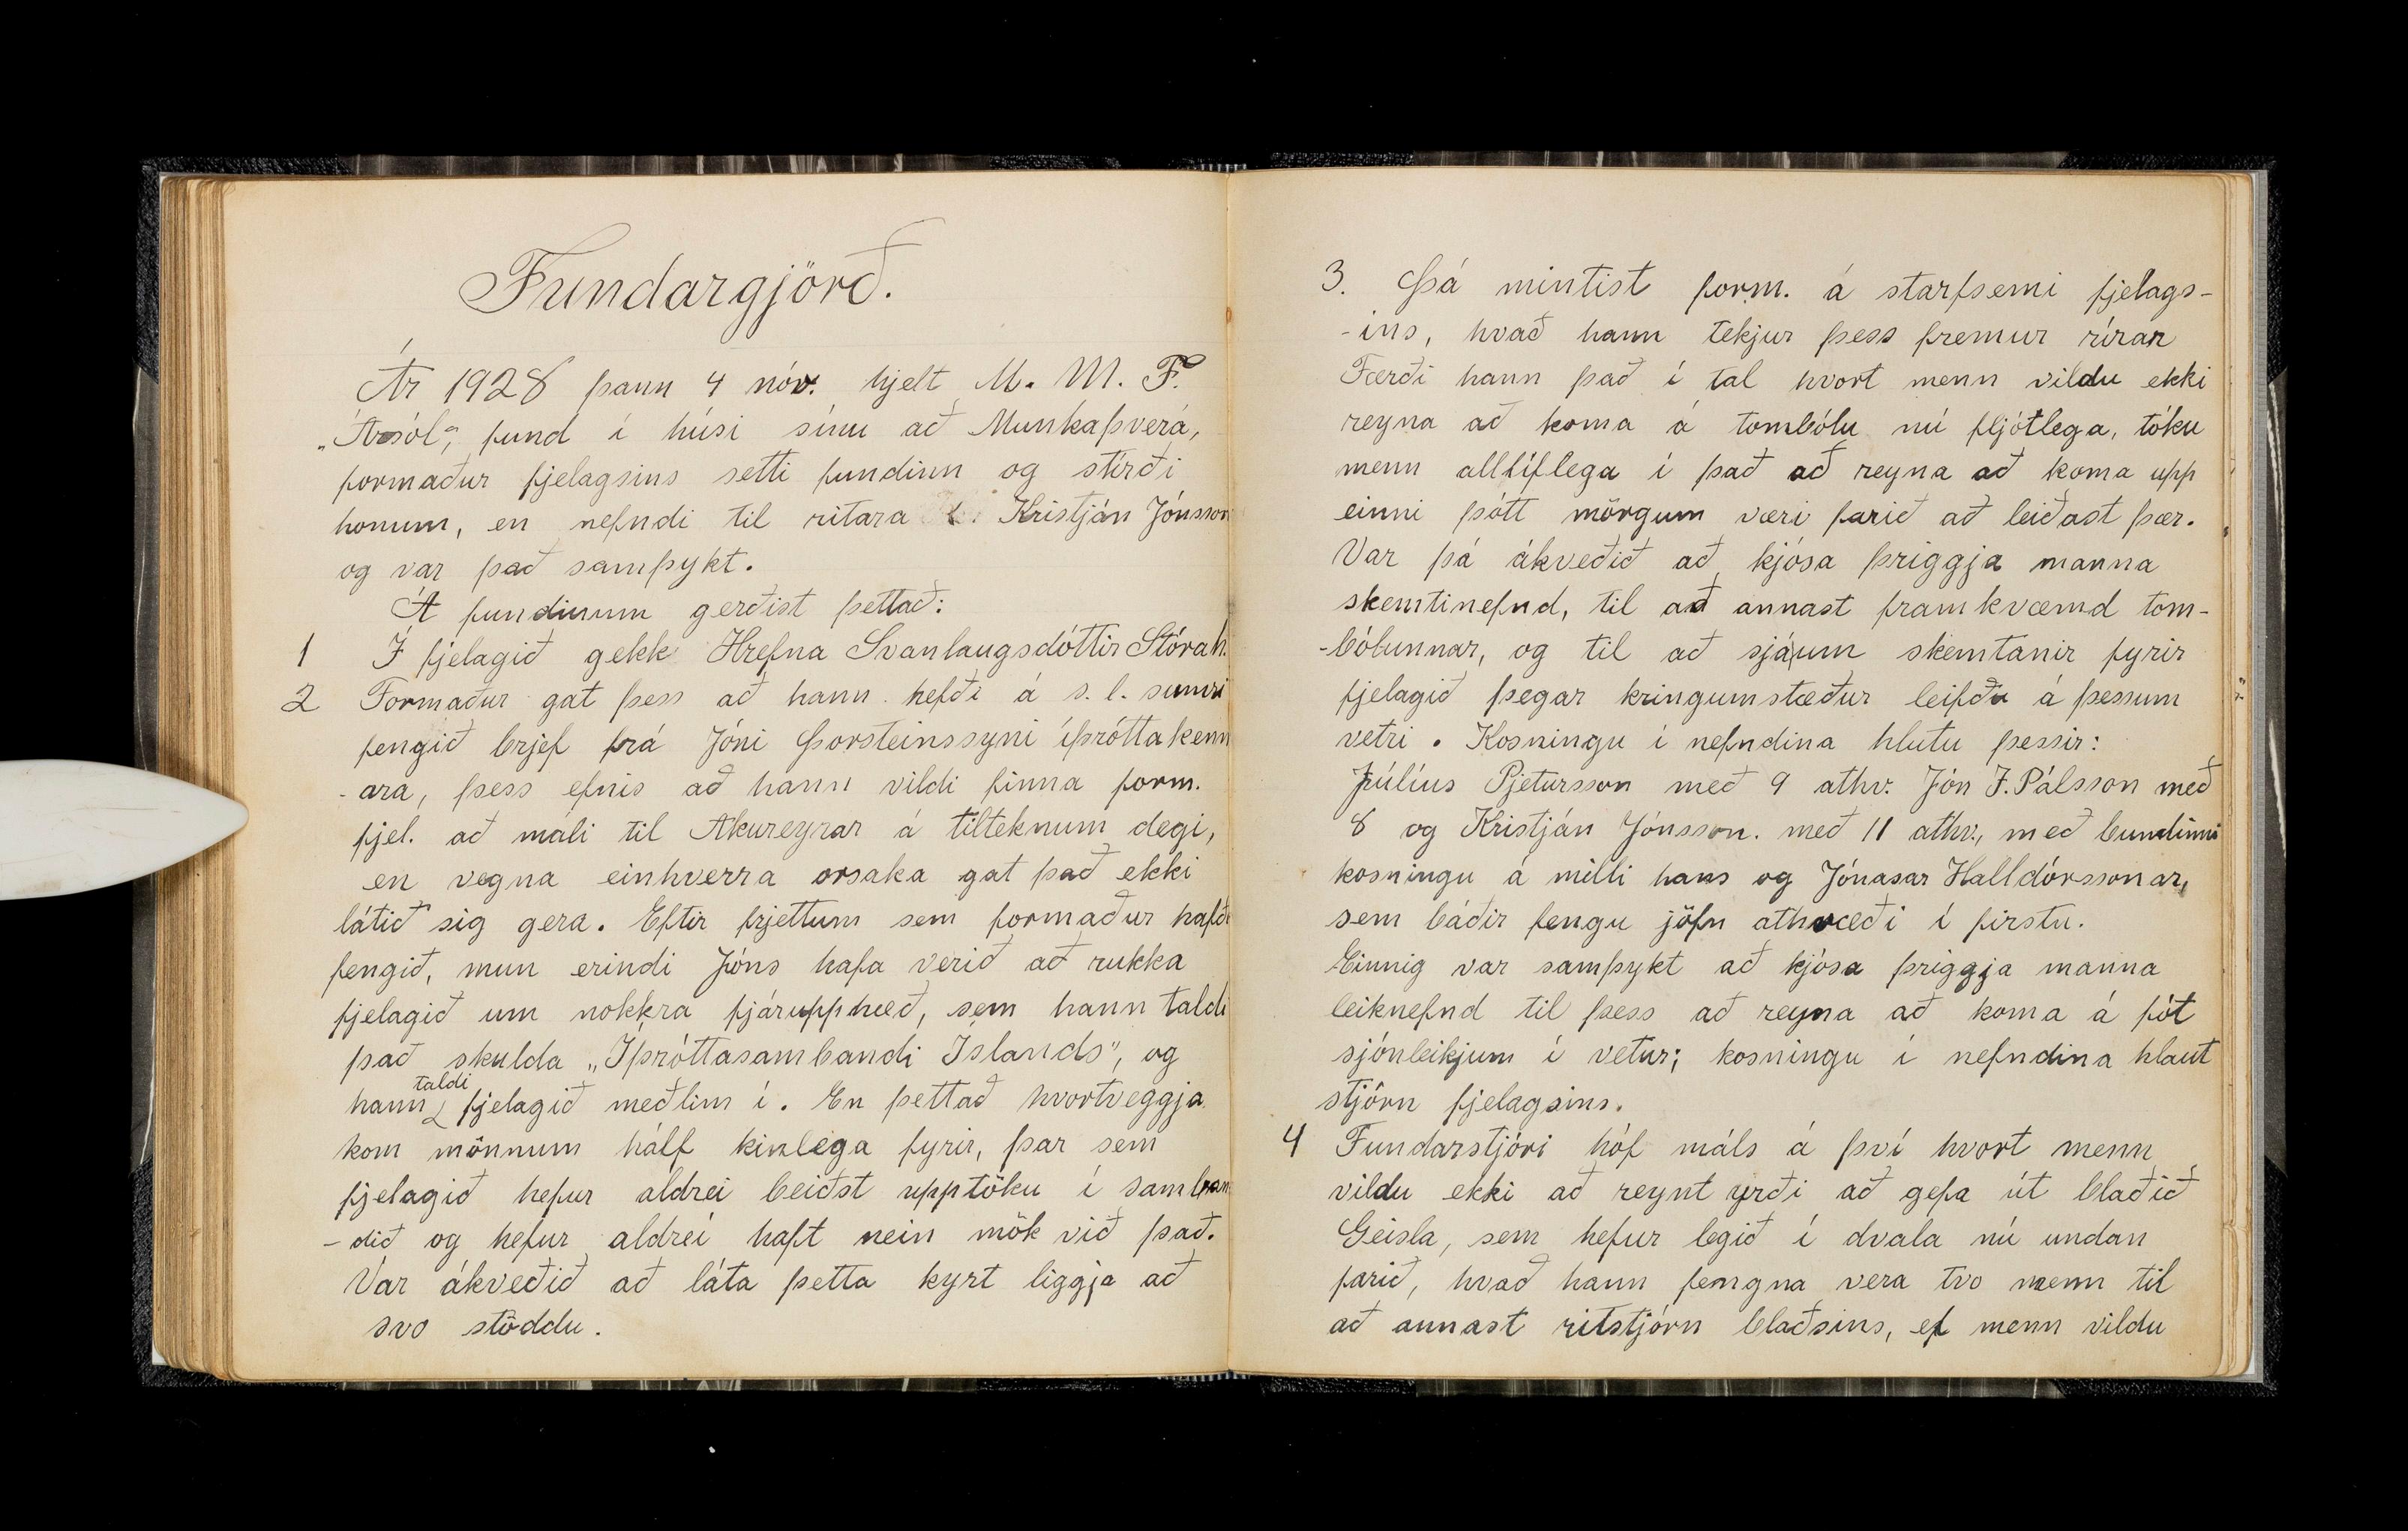 Fundargjörð.
Ár 1928 þann 4 nóv. hjelt M. M. F.
„Ársól", fund í húsi sínu að Munkaþverá,
formaður fjelagsins setti fundinn og stírði
honum, en nefndi til ritara Kristján Jónsson
og var það samþykt.
Á fundinum gerðist þettað:
1 Í fjelagið gekk Hrefna Svanlaugsdóttir Stórah.
2 Formaður gat þess að hann hefði á s. l. sumri
fengið brjef frá Jóni Þorsteinssyni íþróttakenn
-ara, þess efnis að hann vildi finna form.
fjel. að máli til Akureyrar á tilteknum degi,
en vegna einhverra orsaka gat það ekki
látið sig gera. Eftir frjettum sem formaður hafði
fengið, mun erindi Jóns hafa verið að rukka
fjelagið um nokkra fjárupphæð, sem hann taldi
það skulda „Íþróttasambandi Íslands", og
hann taldi fjelagið meðlim í. En þettað hvortveggja
kom mönnum hálf kinlega fyrir, þar sem
fjelagið hefur aldrei beiðst upptöku í samban
-dið og hefur aldrei haft nein mök við það.
Var ákveðið að láta þetta kyrt liggja að
svo stöddu.
3. Þá mintist form. á starfsemi fjelags-
-ins, hvað hann tekjur þess fremur rírar
Færði hann það í tal hvort menn vildu ekki
reyna að koma á tombólu nú fljótlega, tóku
menn alllíflega í það að reyna að koma upp
einni þótt mörgum væri farið að leiðast þær.
Var þá ákveðið að kjósa þriggja manna
skemtinefnd, til að annast framkvæmd tom-
-bólunnar, og til að sjá um skemtanir fyrir
fjelagið þegar kringumstæður leifðu á þessum
vetri. Kosningu í nefndina hlutu þessir:
Júlíus Pjetursson með 9 athv. Jón J. Pálsson með
8 og Kristján Jónsson. með 11 athv., með bundinni
kosningu á milli hans og Jónasar Halldórssonar,
sem báðir fengu jöfn athvæði í firstu.
Einnig var samþykt að kjósa þriggja manna
leiknefnd til þess að reyna að koma á fót
sjónleikjum í vetur; kosningu í nefndina hlaut
stjórn fjelagsins.
4 Fundarstjóri hóf máls á því hvort menn
vildu ekki að reynt yrði að gefa út blaðið
Geisla, sem hefur legið í dvala nú undan
farið, hvað hann fengna vera tvo menn til
að annast ritstjórn blaðsins, ef menn vildu